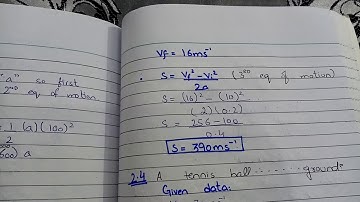 "a" so first
2nd eq of motion
1 (a)(100)²
2
a
Vf = 16ms⁻¹
S = Vf² - Vi² (3rd eq of motion)
2a
S = (16)² - (10)²
(2)(0.2)
S = 256 - 100
0.4
S = 390ms⁻¹
2.4 A tennis ball ........ ground.
Given data: